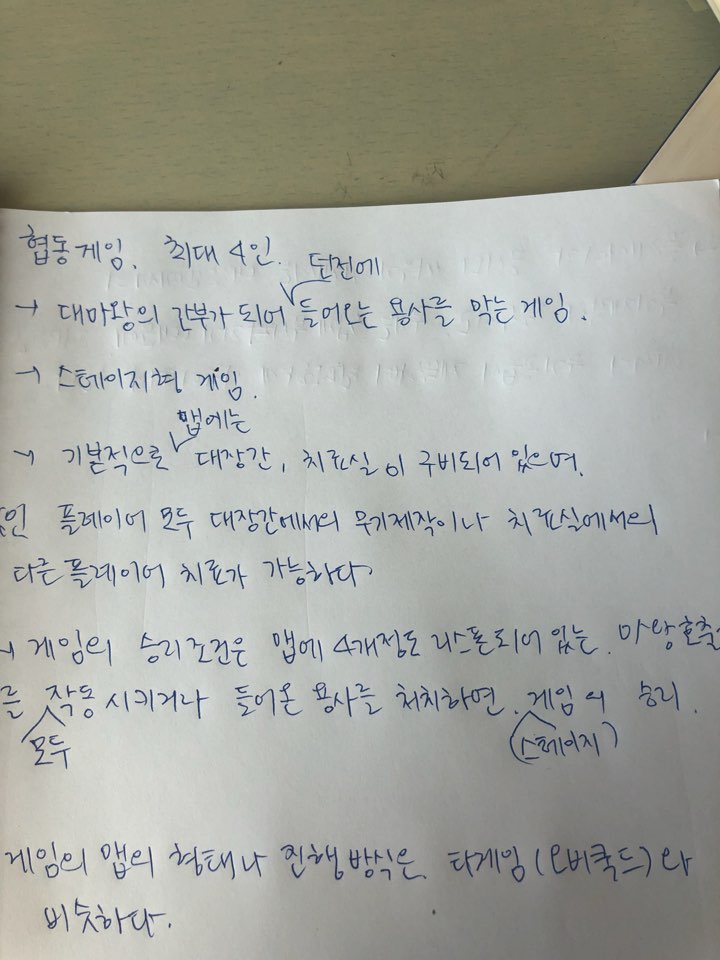 협동게임, 최대 4인.
던전에
→ 대마왕의 간부가 되어 들어오는 용사를 막는 게임.
→ 스테이지형 게임.
맵에는
→ 기본적으로 대장간, 치료실이 구비되어 있으며,
플레이어 모두 대장간에서의 무기제작이나 치료실에서의
다른플레이어 치료가 가능하다.
→ 게임의 승리조건은 맵에 4개정도 리스폰되어 있는 마왕호출
를 작동시키거나 들어온 용사를 처치하면 게임의 승리.
모두 (스테이지)
게임의 맵의 형태나 진행방식은 타게임(오버쿡드)와
비슷하다.